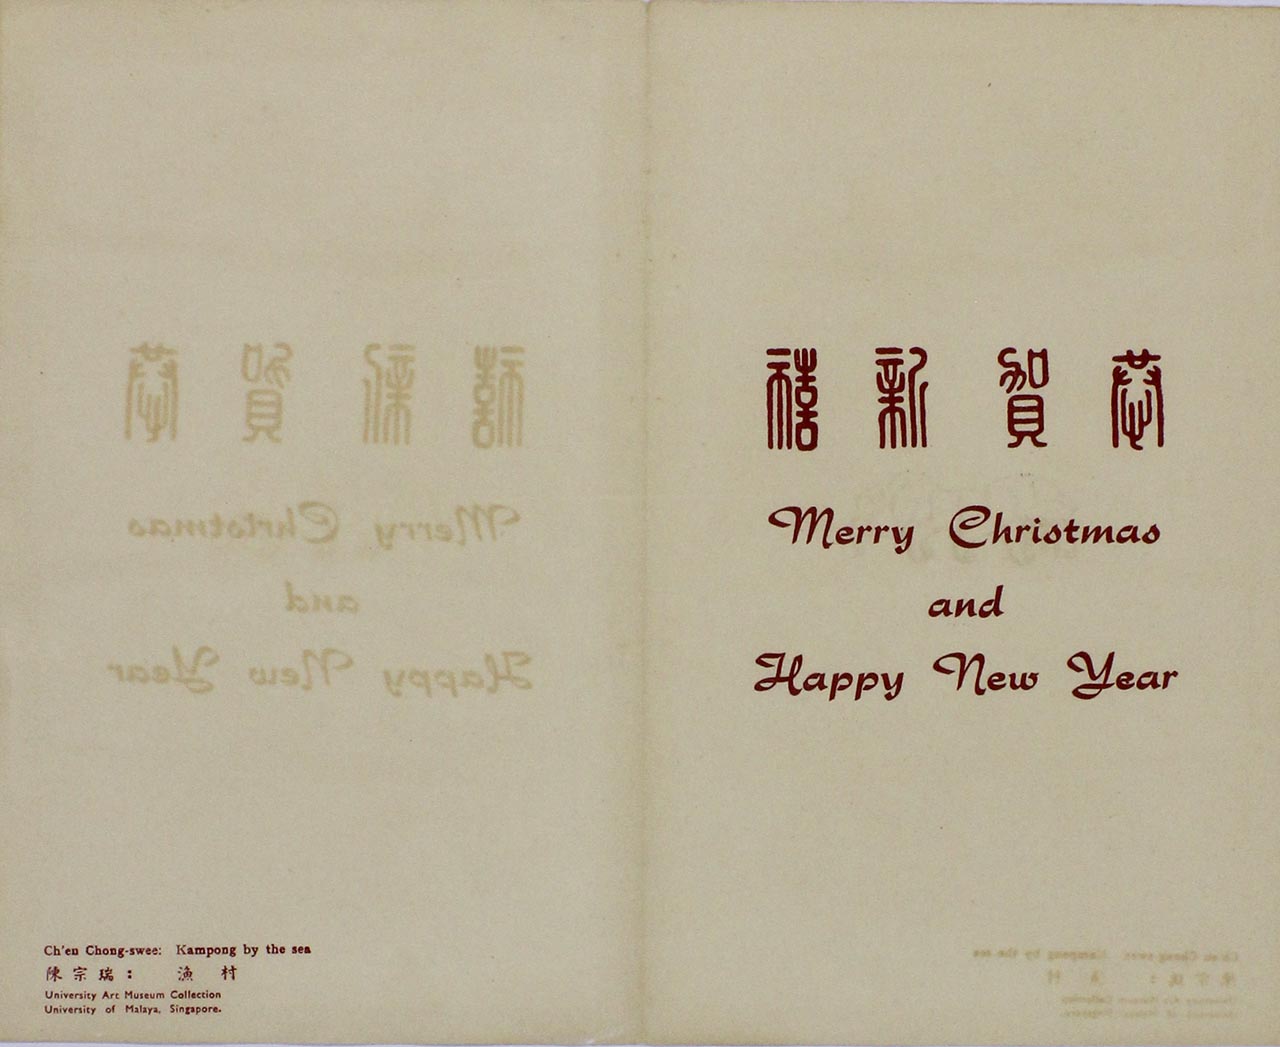 恭賀新禧
Merry Christmas
and
Happy New Year
Ch'en Chong-swee: Kampong by the sea
陳宗瑞： 漁村
University Art Museum Collection
University of Malaya, Singapore.